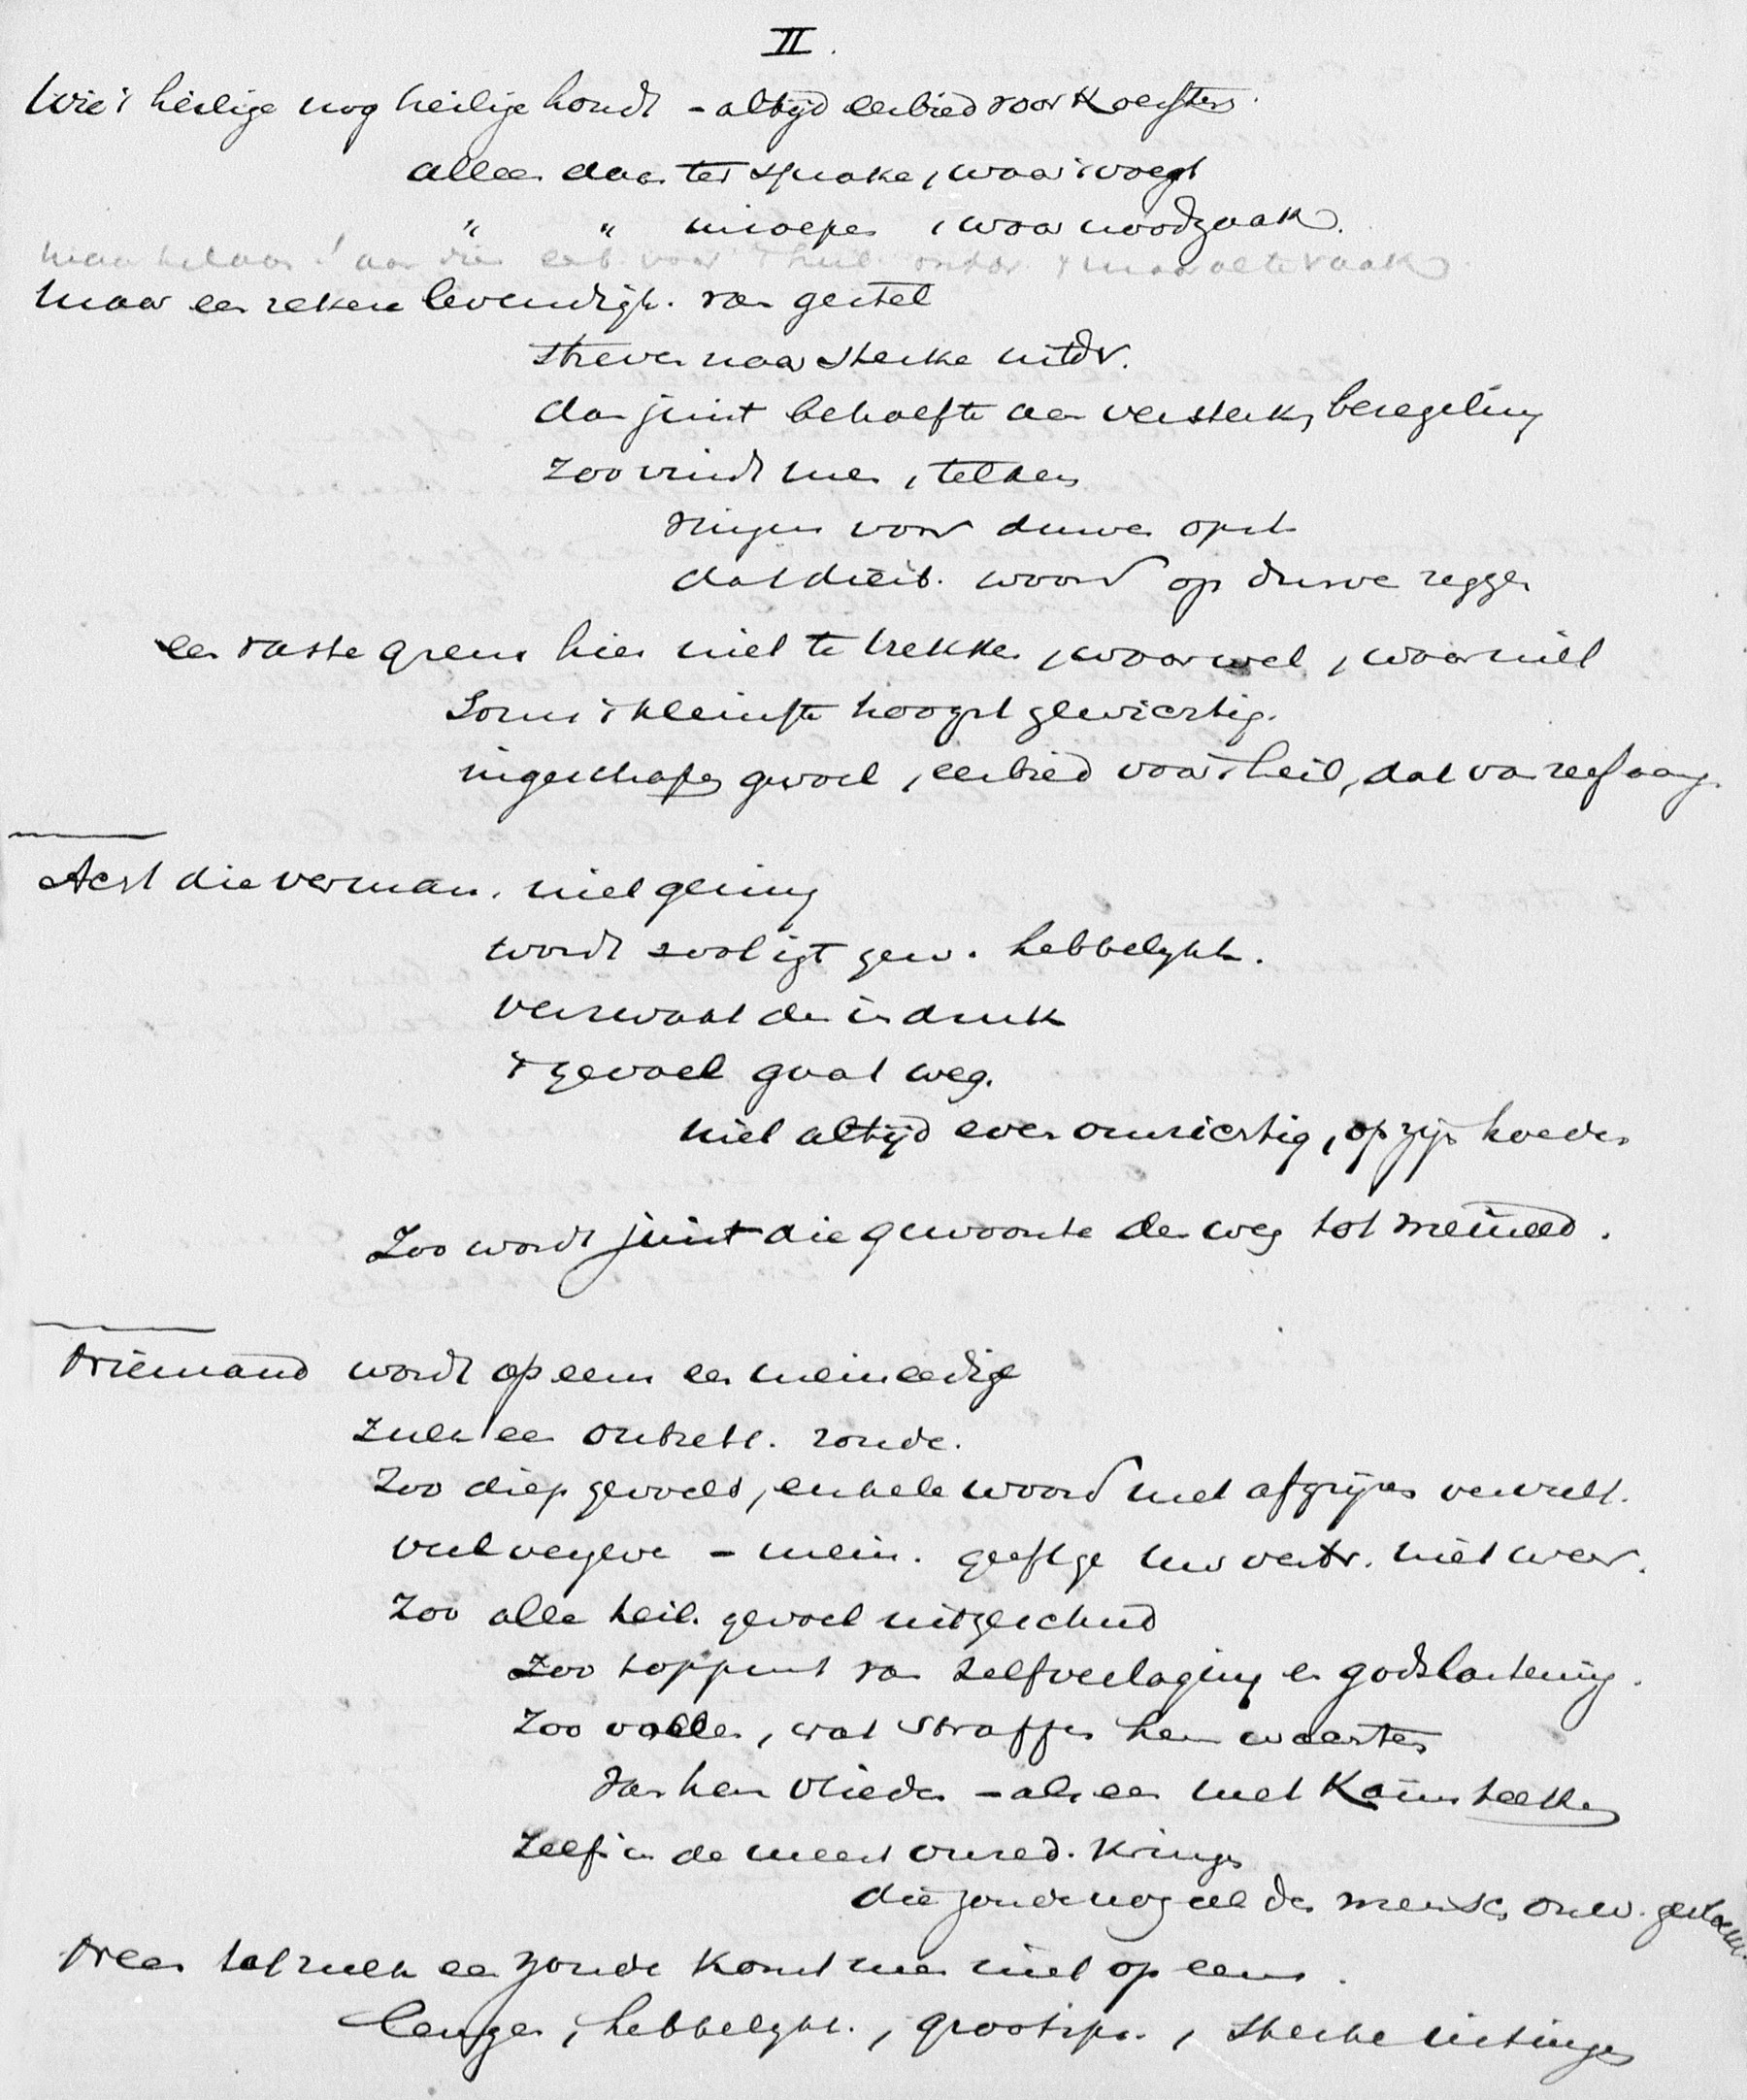 II.
Wie 't heilige nog heilige houdt – altijd eerbied voor koester
alleen daar ter sprake, waar 't voegt
" " inroepen, waar noodzaak.
maar helaas! aan die eerb. voor 't heil. ontbr. 't maar al te vaak
Maar een zekere levendigh. van gestel
streven naar sterke uitdr.
dan juist behoefte aan versterk, bezegeling
Zoo vindt men, telkens
dingen voor duivel opsl
dat dierb. woord op durve zeggen
een vaste grens hier niet te trekken, waar wel, waar niet
Soms 't kleinste hoogst gewichtig.
ingeschapen gevoel, eerbied voor 't heil, dat van zelf aang.
Acht die verman. niet gering
wordt zoo ligt gew. hebbelykh.
verzwakt den indruk
't gevoel gaat weg.
niet altijd even omzichtig, op zijn hoede
Zoo wordt juist die gewoonte de weg tot meineed.
Niemand wordt opeens een meineedige
Zulk een ontzett. zonde.
Zoo diep gevoeld, enkele woord met afgrijzen vervult.
veel vergeven – mein. geeft ge uw vertr. niet weer.
Zoo alle heil. gevoel uitgeschud
Zoo toppunt van zelfverlaging en godslastering.
Zoo vallen, wat straffen hem wachten
Van hem vlieden – als een met Kaïnsteeken
Zelfs in de meest onzed. kringen
die zonde nog al den mensch onw. gestem.
Neen tot zulk een zonde komt men niet opeens.
leugen, hebbelykh., grootspr., sterke uitingen